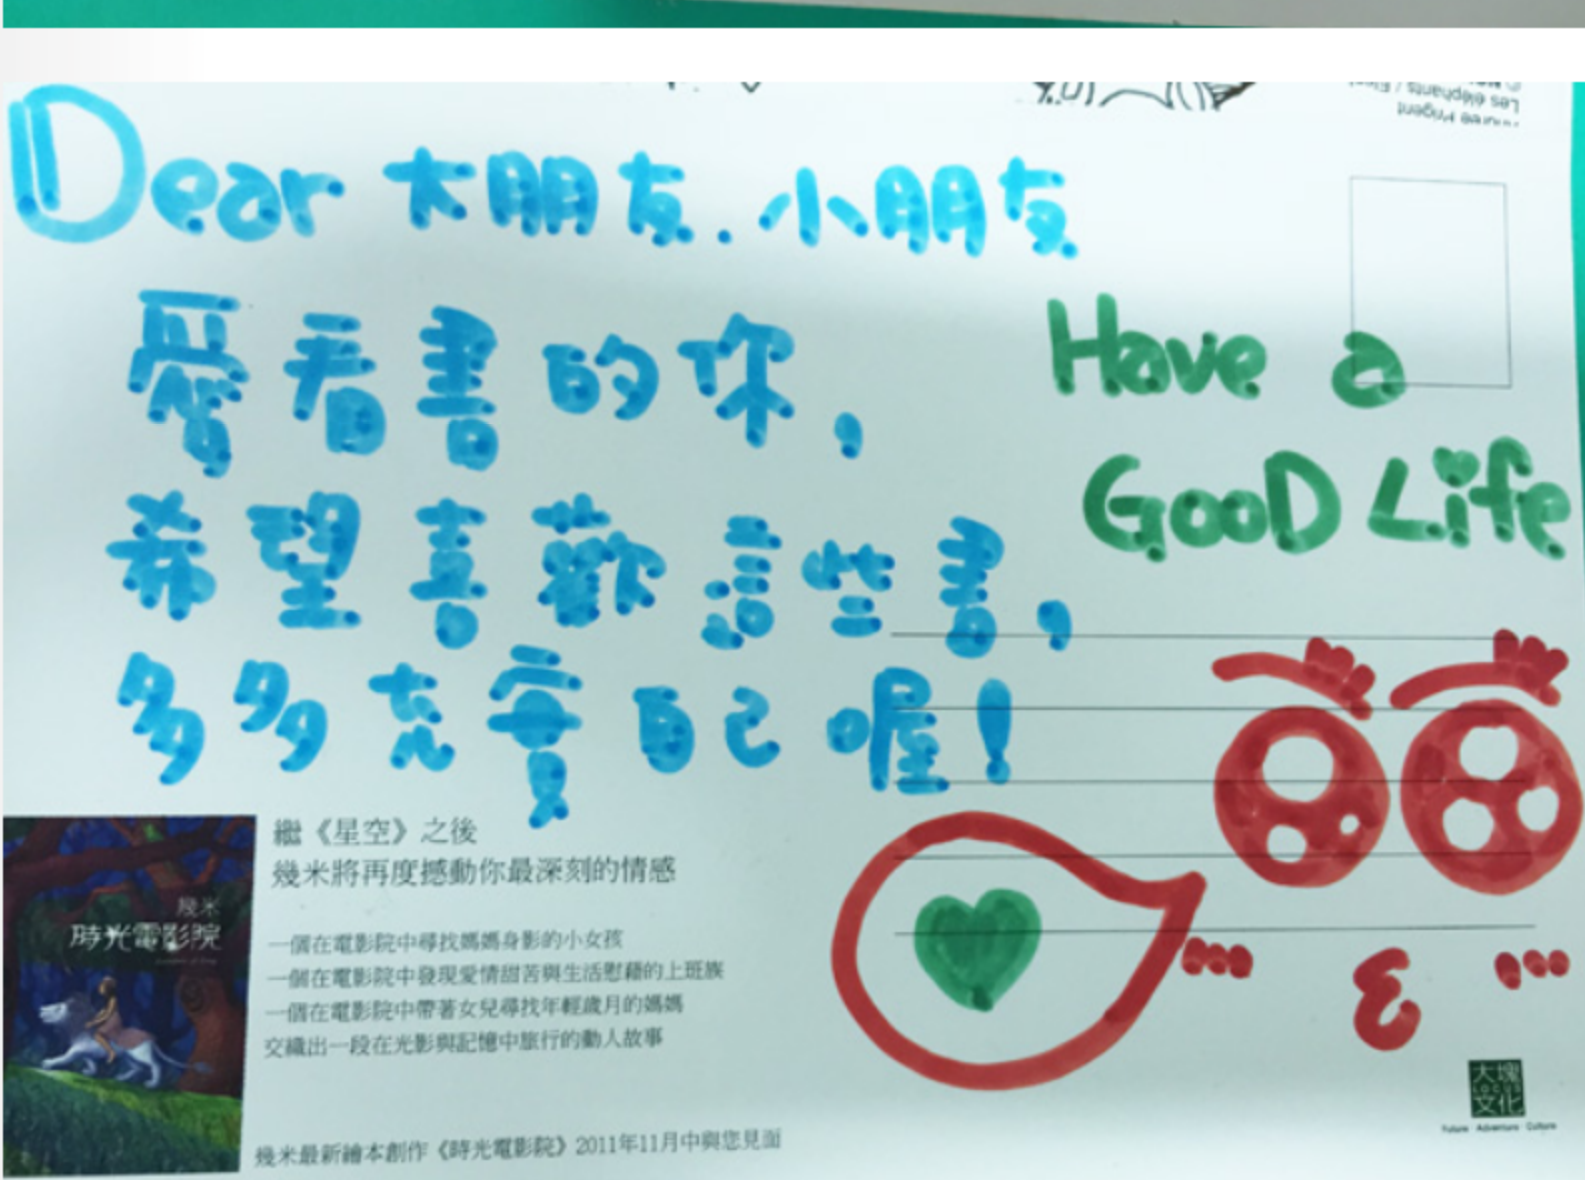 Dear 大朋友.小朋友
愛看書的你,
希望喜歡這些書,
多多充實自己喔!
Have a
GooD Life
繼《星空》之後
幾米將再度撼動你最深刻的情感
一個在電影院中尋找媽媽身影的小女孩
一個在電影院中發現愛情甜苦與生活慰藉的上班族
一個在電影院中帶著女兒尋找年輕歲月的媽媽
交織出一段在光影與記憶中旅行的動人故事
幾米最新繪本創作《時光電影院》2011年11月中與您見面
幾米
時光電影院
大塊
LOCUS
文化
Future · Adventure · Culture
Les éléphants /